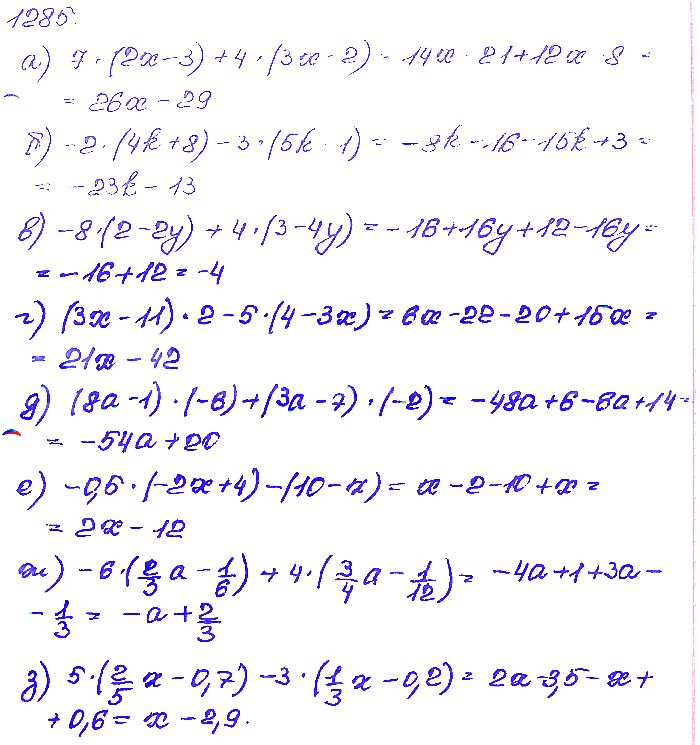 1285.
а) 7·(2x-3)+4·(3x-2) = 14x-21+12x-8 =
= 26x-29
б) -2·(4k+8)-3·(5k-1) = -8k-16-15k+3 =
= -23k-13
в) -8·(2-2y)+4·(3-4y) = -16+16y+12-16y =
= -16+12 = -4
г) (3x-11)·2-5·(4-3x) = 6x-22-20+15x =
= 21x-42
д) (8a-1)·(-6)+(3a-7)·(-2) = -48a+6-6a+14 =
= -54a+20
е) -0,5·(-2x+4)-(10-x) = x-2-10+x =
= 2x-12
ж) -6·(2/3 a - 1/6) + 4·(3/4 a - 1/12) = -4a+1+3a-
- 1/3 = -a + 2/3
з) 5·(2/5 x - 0,7) -3·(1/3 x - 0,2) = 2x-3,5-x+
+0,6 = x-2,9.